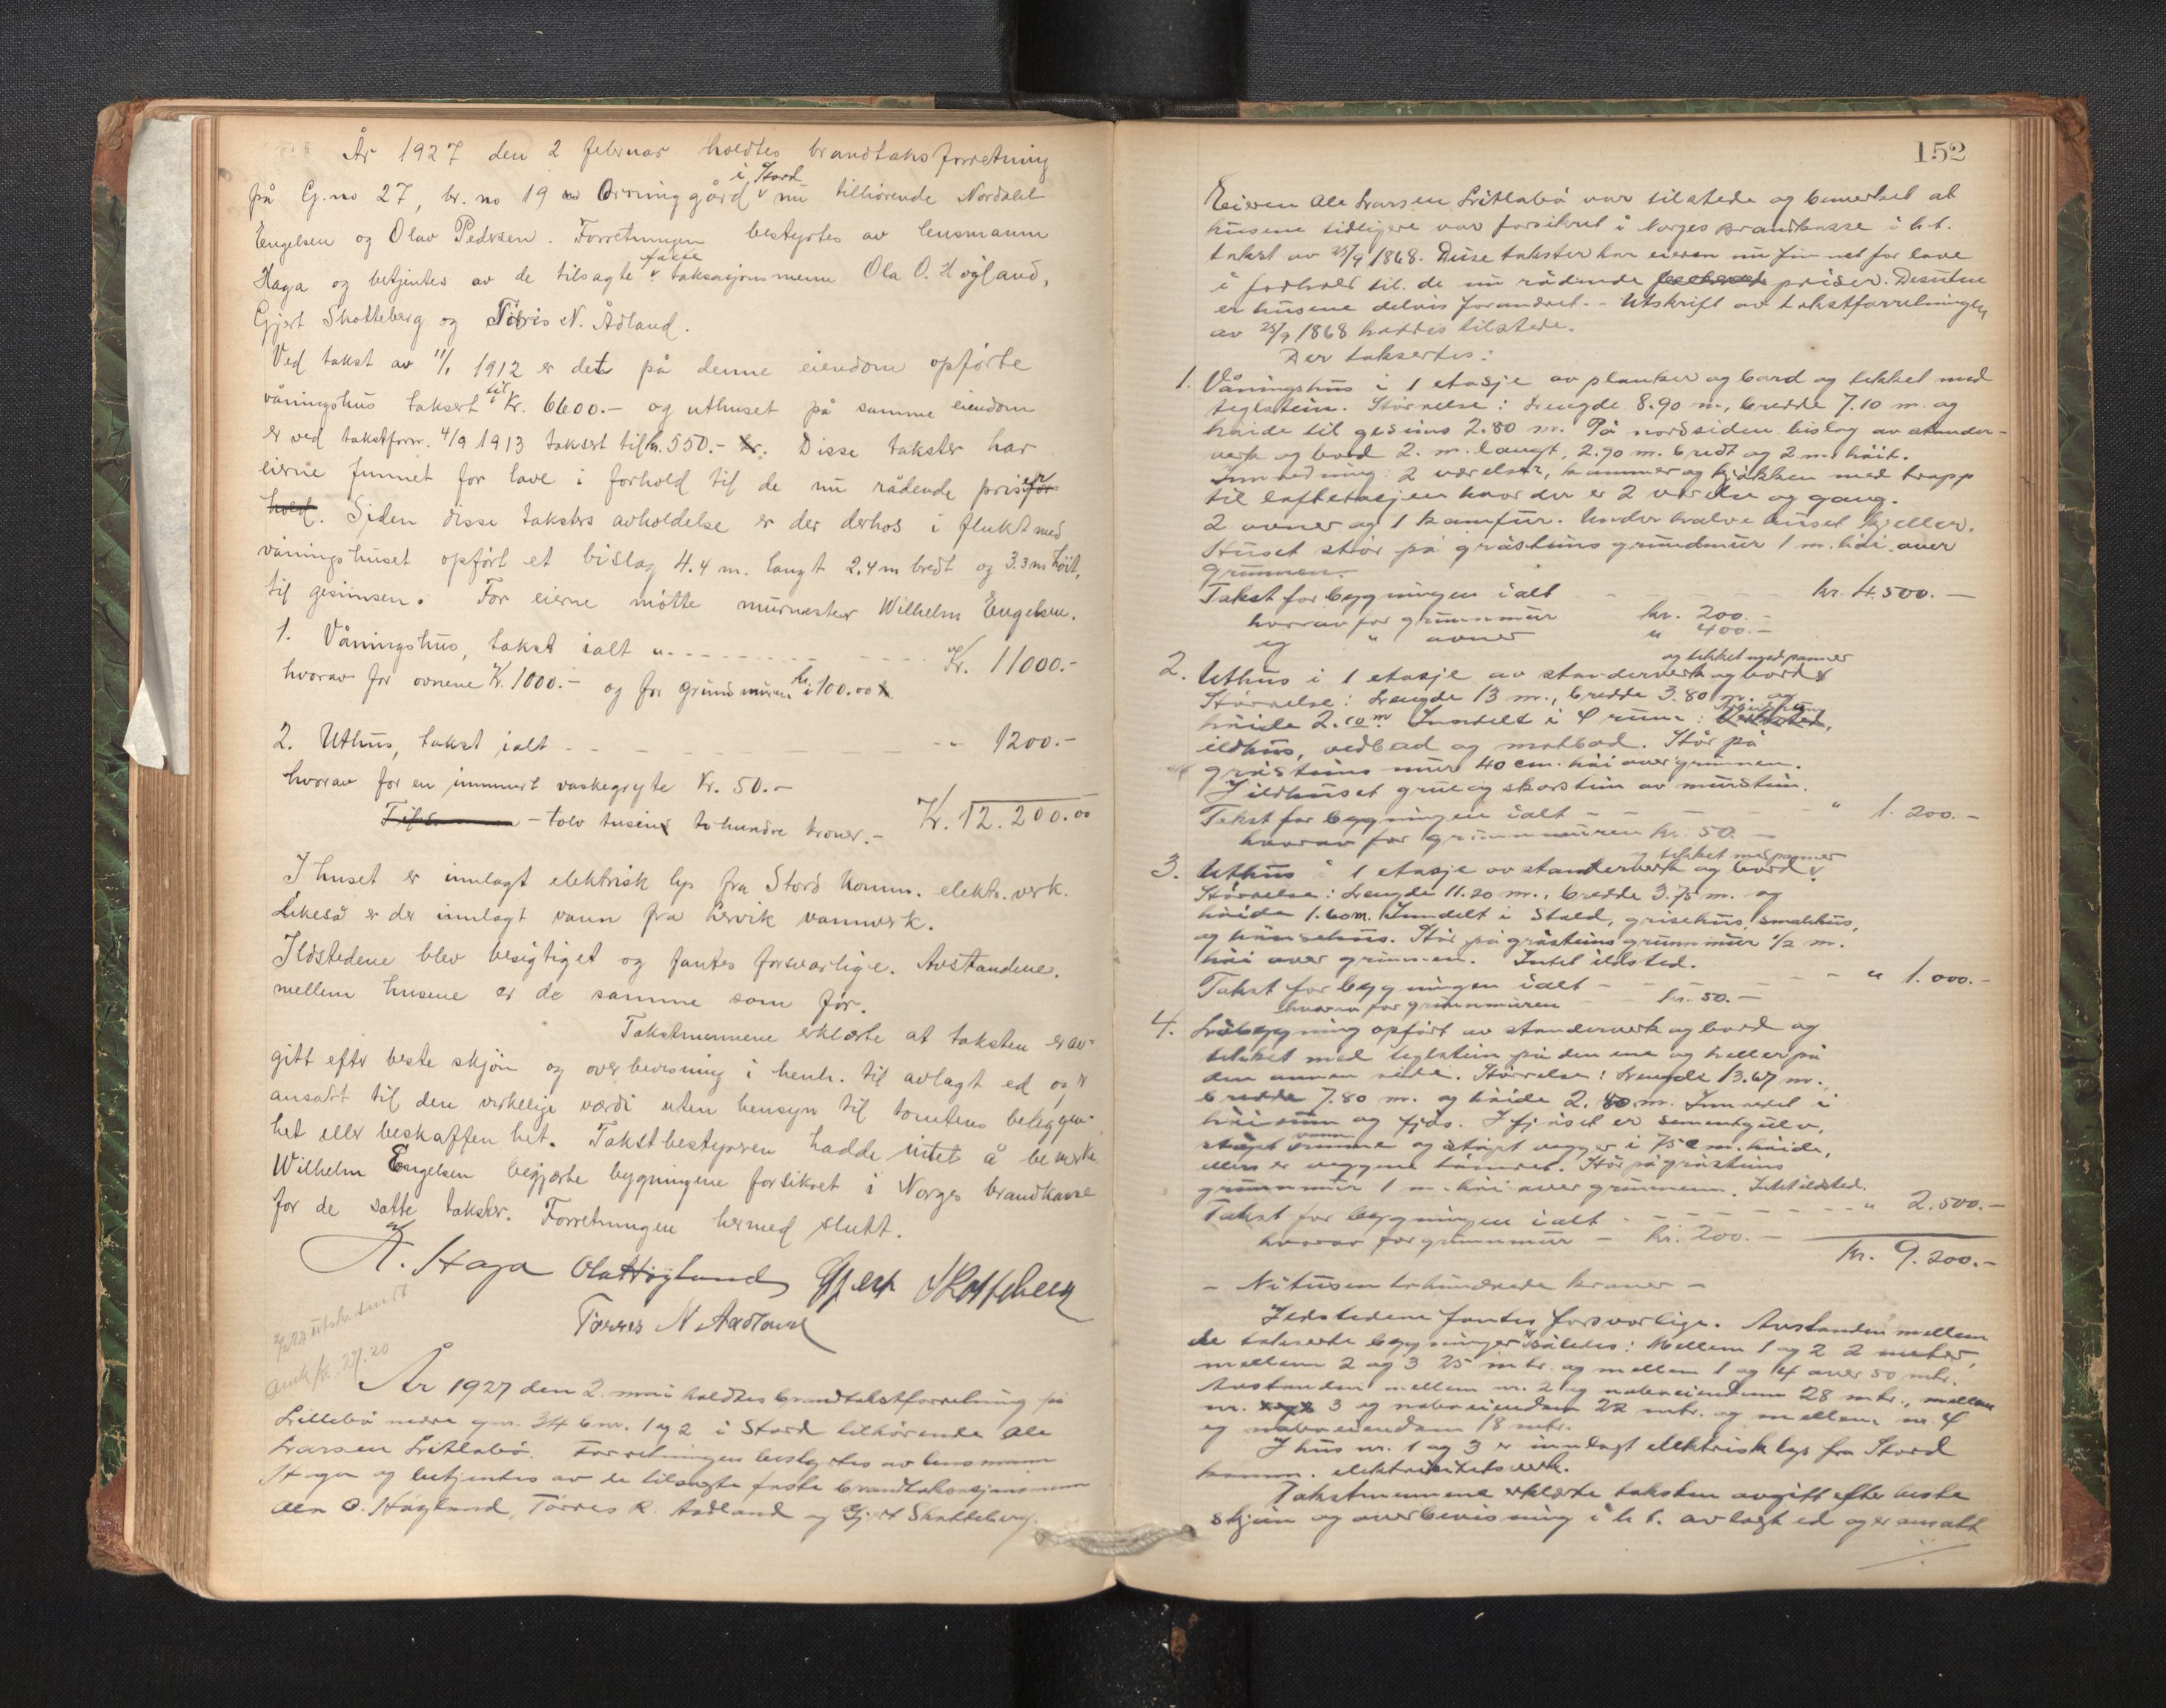 År 1927 den 2 februar holdtes brandtaksforretning
i Stord
på G.no 27, br. no 19 Orninggård nu tilhörende Nordahl
Engelsen og Olav Pedersen. Forretningen bestyrtes av lensmann
faste
Haga og betjentes av de tilsagte taksasjonsmenn Ola O. Høgland,
Gjert Skotteberg og Törris N. Ådland.
Ved takst av 11/1 1912 er det på denne eiendom opförte
våningshus taksert til Kr. 6600.- og uthuset på samme eiendom
er ved takstforr. 4/9 1913 taksert til kr. 550.- Disse takster har
eierne funnet for lave i forhold til de nu rådende priser
Siden disse taksters avholdelse er der derhos i flukt med
våningshuset opfört et bislag 4.4 m. langt 2.4 m bredt og 3.3 m höit,
til gesimsen. For eierne mötte murmester Wilhelm Engelsen.
1. Våningshus, takst ialt " - - - - - Kr. 11000.-
hvorav for ovnene Kr. 1000.- og for grundmuren kr. 100.00
2. Uthus, takst ialt - - - - - " 1200.-
hvorav for en innmurt vaskegryte Kr. 50.-
- tolv tusen tohundre kroner.- Kr. 12.200.00
I huset er innlagt elektrisk lys fra Stord komm. elektr. verk.
Likeså er der innlagt vann fra Lervik vannverk.
Ildstedene blev besigtiget og fantes forsvarlige. Avstandene
mellem husene er de samme som för.
Takstmennene erklærte at taksten er av-
gitt efter beste skjön og overbevisning i henh. til avlagt ed og er
ansatt til den virkelige værdi uten hensyn til tomtens beliggen-
het eller beskaffenhet. Takstbestyreren hadde intet å bemerke
Wilhelm Engelsen begjærte bygningene forsikret i Norges brandkasse
for de satte takster. Forretningen hermed slutt.
A. Haga Ola Høgland Gjert Skotteberg
Tørres N. Aadland
År 1927 den 2. mai holdtes brandtakstforretning på
Litlebö nedre gnr. 34 bnr. 1 og 2 i Stord tilhörende Ole
Larsen Litlabö. Forretningen bestyrtes av lensmann
Haga og betjentes av de tilsagte faste brandtaksasjonsmenn
Ola O. Høgland, Törres N. Aadland og Gjert Skotteberg.
152
Eieren Ole Larsen Litlabö var tilstede og bemerket at
husene tidligere var forsikret i Norges Brandkasse i h. t.
takst av 25/9 1868. Disse takster har eieren nu funnet for lave
i forhold til de nu rådende priser. Desuten
er husene delvis forandret. - Utskrift av takstforretningen
av 25/9 1868 haddes tilstede.
Der taksertes:
1. Våningshus i 1 etasje av planker og bord og tekket med
teglstein. Störrelse: Lengde 8.90 m, bredde 7.10 m. og
höide til gesims 2.80 m. På nordsiden bislag av stender-
verk og bord 2. m. langt, 2.90 m. bredt og 2 m. höit.
Innredning: 2 værelser, kammer og kjökken med trapp
til loftetasjen hvor der er 2 værelser og gang.
2 ovner og 1 komfur. Under halve huset kjeller.
Huset står på gråsteins grundmur 1 m. höi over
grunnen.
Takst for bygningen ialt - - - kr. 4.500.-
hvorav for grunnmur kr. 200.-
og " ovner " 400.-
og tekket med panner
2. Uthus i 1 etasje av stenderverk og bord
Störrelse: Lengde 13 m., bredde 3.80 m. og
höide 2.10 m Inndelt i 4 rum:
ildhus, vedbod og matbod. Står på
gråsteins mur 40 cm. höi over grunnen.
I ildhuset grue og skorstein av murstein.
Takst for bygningen ialt - - - " 1.200.-
hvorav for grunnmuren kr. 50.-
og tekket med panner
3. Uthus i 1 etasje av stenderverk og bord
Störrelse: Lengde 11.20 m., bredde 3.75 m. og
höide 1.60 m. Inndelt i Stald, grisehus, smalehus,
og hönsehus. Står på gråsteins grunnmur 1/2 m.
höi over grunnen. Intet ildsted.
Takst for bygningen ialt - - - " 1.000.-
hvorav for grunnmuren kr. 50.-
4. Löbygning opfört av stenderverk og bord og
tekket med teglstein på den ene og heller på
den annen side. Störrelse: Lengde 13.67 m.,
bredde 7.80 m. og höide 2.80 m. Innredet i
höirum og fjös. I fjöset er sementgulv,
stöpt og stöpt vegger i 75 cm. höide,
ellers er veggene tömret. Står på gråsteins
grunnmur 1 m. höi over grunnen. Intet ildsted.
Takst for bygningen ialt - - - " 2.500.-
hvorav for grunnmur - kr. 200.-
kr. 9.200.-
- Nitusen tohundrede kroner -
Ildstedene fantes forsvarlige. Avstanden mellem
de takserte bygninger således: Mellem 1 og 2 2 meter,
mellem 2 og 3 25 mtr. og mellem 1 og 4 over 50 mtr.
Avstanden mellem nr. 2 og naboeiendom 28 mtr., mellem
nr. 3 og naboeiendom 22 mtr. og mellem nr. 4
og naboeiendom 18 mtr.
I hus nr. 1 og 3 er innlagt elektrisk lys fra Stord
komm. elektrisitetsverk.
Takstmennene erklærte taksten avgitt efter beste
skjön og overbevisning i h. t. avlagt ed og er ansatt